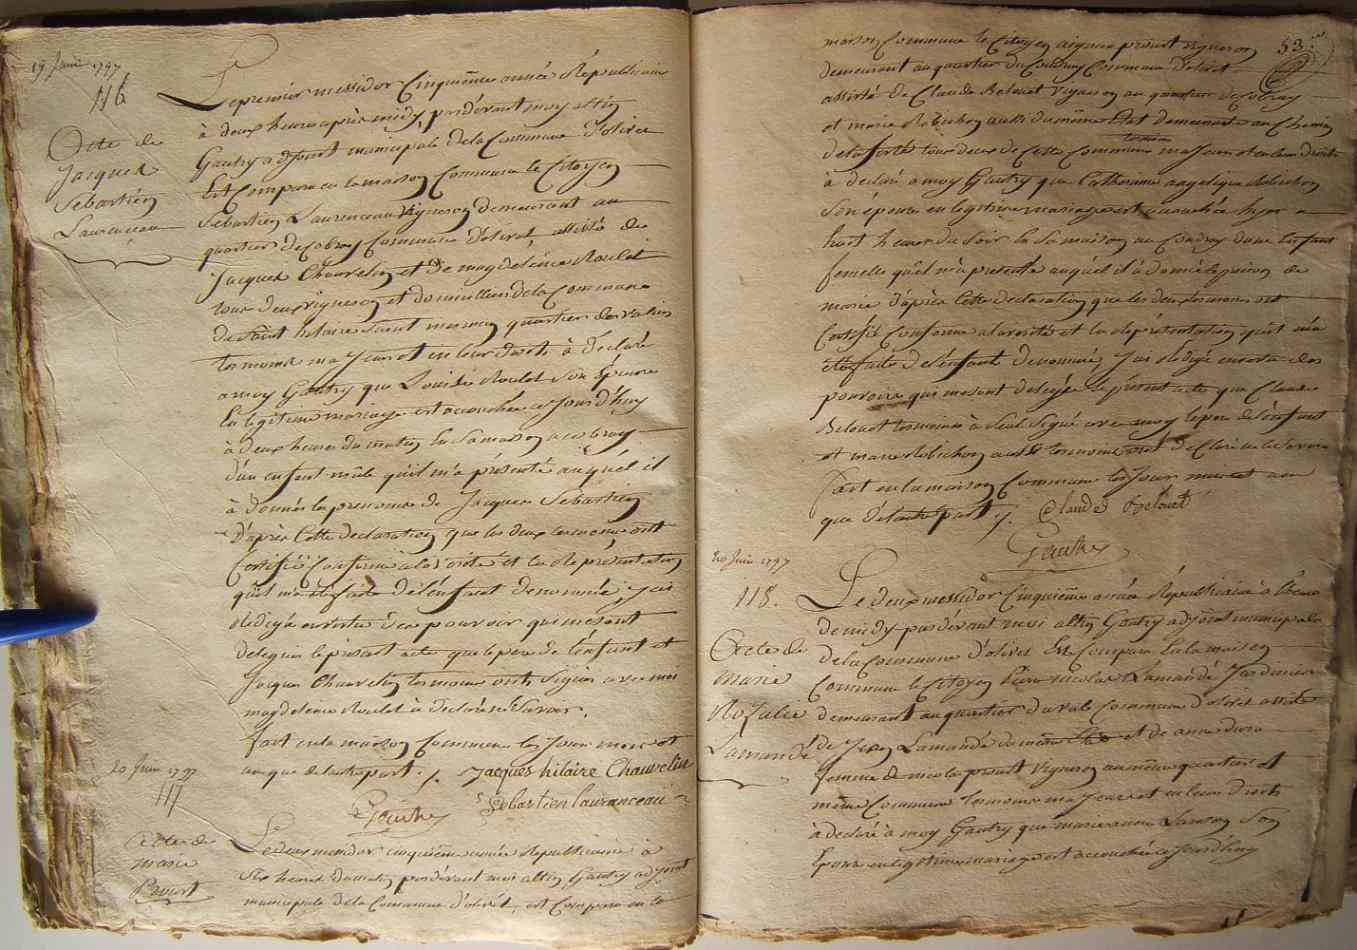 19 Juin 1797
116
Acte de
Jacques
Sebastien
Laurenceau
Le premier messidor Cinquième année Républicaine
à deux heures après midy pardevant moy altin
Gautry adjoint municipale de la Commune d'olivet
Est Comparu en la maison Commune le Citoyen
Sebastien Laurenceau Vigneron demeurant au
quartier de Commune d'olivet, assisté de
Jacques Chauvelin et de magdeleine Roulet
tous deux vignerons et domicilliés de la Commune
de Saint hilaire Saint mesmin quartier des
temoins majeurs et en leur droits à déclaré
a moy Gautry que Louise Roulet son Epouse
En légitime mariage est accouchée ce Jourd'huy
à deux heures du matin En sa maison a
d'un enfant mâle qu'il m'a présenté auquel il
à donné les prenoms de Jacques Sebastien
D'après Cette declaration que les deux temoins ont
Certifié Conforme a la vérité et la représentation
qu'il m'a été faite de l'enfant denommé, j'ai
rédigé en vertu des pouvoir qui me sont
delegués le présent acte que le père de l'enfant et
Jacques Chauvelin temoins ont signés avec moi
magdeleine Roulet à déclaré ne savoir.
fait en la maison Commune les Jour mois et
an que delautrepart ./.
Jacques hilaire Chauvelin
Sebastien lauranceau
Gautry
20 Juin 1797
117
Acte de
marie
Proust
Le deux messidor cinquième année Republicaine à
Six heures du matin, pardevant moi altin Gautry adjoint
municipale de la Commune d'olivet, est Comparu en la
53
maison Commune le Citoyen aignan proust vigneron
demeurant au quartier du Coudray Commune d'olivet
assisté de Claude Belouet Vigneron au quartier de
et marie Robichon aussi du même Etat demeurante au Chemin
de la ferté tous deux de Cette Commune majeurs et en leur droits
temoins
à déclaré a moy Gautry que Catherine angelique Robichon
Son épouse en légitime mariage est accouchée hyer a
huit heures du Soir En Sa maison au Coudray d'une Enfant
femelle qu'il m'a présenté auquel il à donné le prenom de
marie d'après Cette declaration que les deux temoins ont
Certifié Conforme a la verité et la représentation qu'il m'a
été faite de l'enfant denommé, J'ai rédigé en vertu des
pouvoirs qui me sont delegués le présent acte que Claude
Belouet temoins à Seul Signé avec moy le pere de l'enfant
et marie Robichon autre temoins ont déclaré ne le Savoir
fait en la maison Commune les Jour mois et an
que d'elautrepart ./. Claude Belouet
Gautry
20 Juin 1797
118.
Acte de
Marie
Rozalie
Lamandé
Le deux messidor Cinquième année Républicaine à
de midy pardevant moi altin Gautry adjoint municipale
de la Commune d'olivet Est Comparu En la maison
Commune le Citoyen Pierre nicolas Lamandé Jardinier
demeurant au quartier du val Commune d'olivet assisté
de Jean Lamandé du même Etat et de anne
femme de nicolas proust Vigneron au même quartier et
même Commune temoins majeurs et en leur droits
à déclaré à moy Gautry que marie anne Son
Epouse en légitime mariage est accouchée ce Jourd'huy